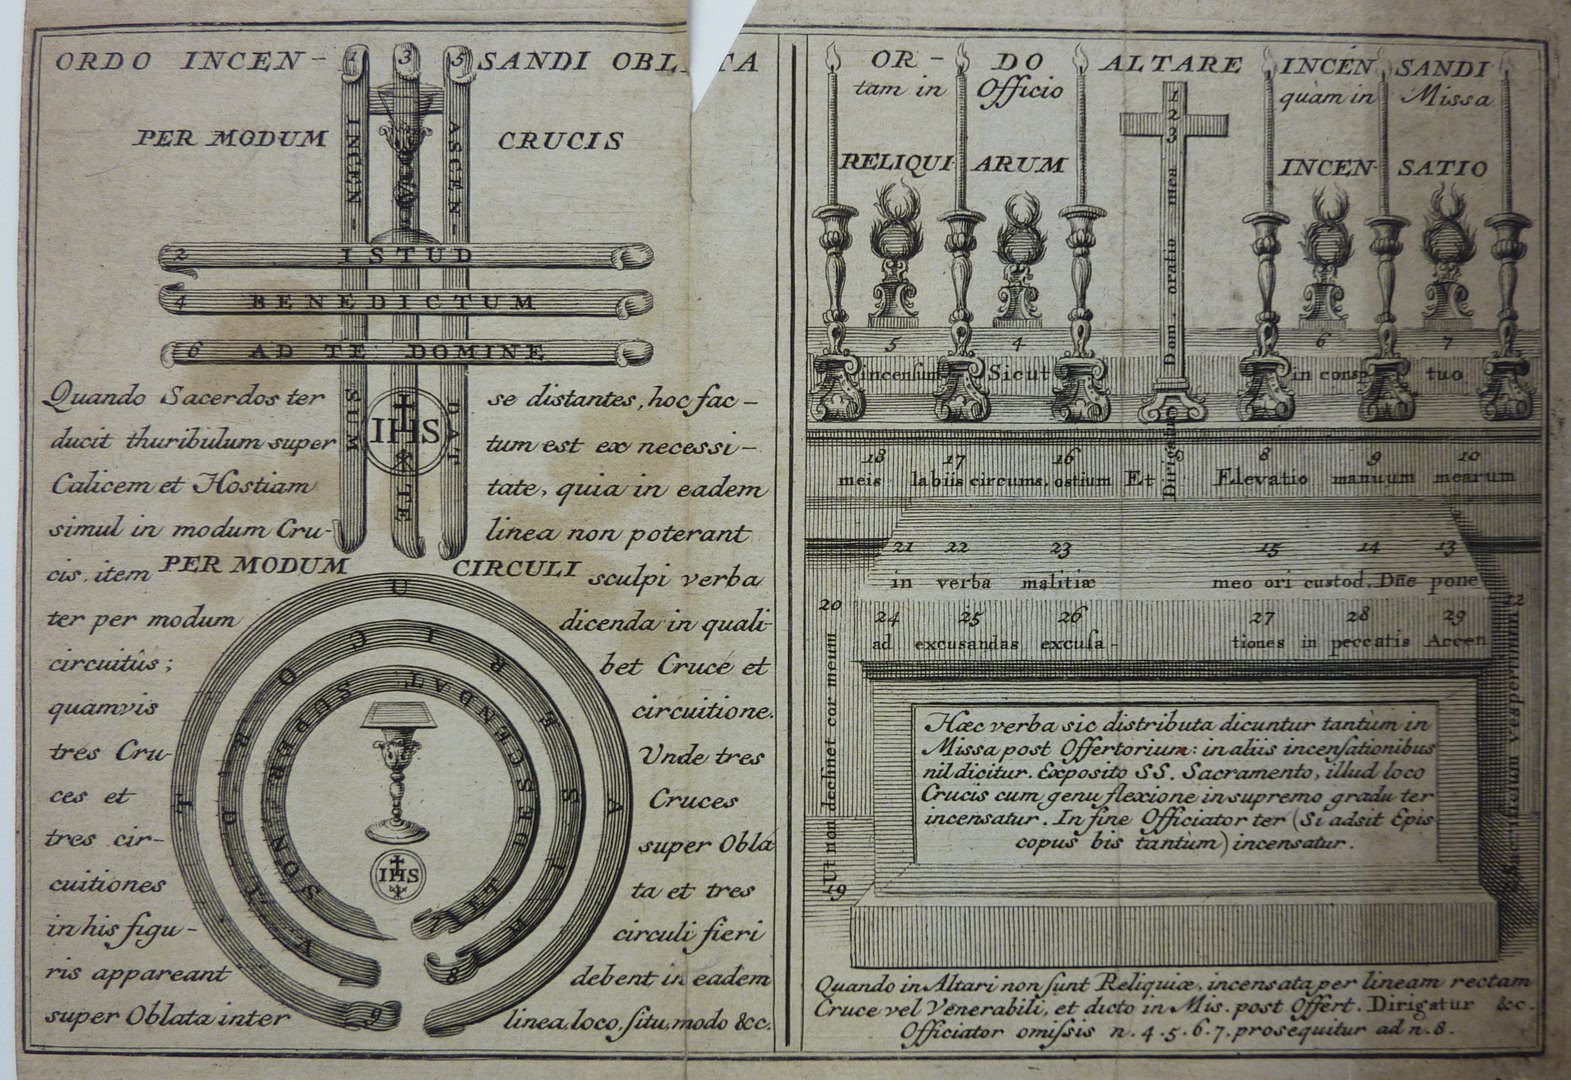 ORDO INCEN- 1 3 5 SANDI OBL TA
PER MODUM CRUCIS
INCEN-
ASCEN-
2 ISTUD
4 BENEDICTUM
6 AD TE DOMINE
SUM
DAT
TE
IHS
Quando Sacerdos ter
ducit thuribulum super
Calicem et Hostiam
simul in modum Cru-
cis, item
ter per modum
circuitûs;
quamvis
tres Cru-
ces et
tres cir-
cuitiones
in his figu-
ris appareant
super Oblata inter
se distantes, hoc fac-
tum est ex necessi-
tate, quia in eadem
linea non poterant
sculpi verba
dicenda in quali-
bet Cruce et
circuitione.
Unde tres
Cruces
super Obla
ta et tres
circuli fieri
debent in eadem
linea, loco, situ, modo &c.
PER MODUM CIRCULI
IHS
8
9
OR- DO ALTARE INCEN SANDI
tam in Officio quam in Missa
RELIQUI ARUM INCEN- SATIO
1
2
3
Dom. oratio mea
Dirigatur
5 4 6 7
incensum Sicut in consp. tuo
18 17 16 8 9 10
meis labiis circums. ostium Et Elevatio manuum mearum
21 22 23 15 14 13
in verba malitiæ meo ori custod. Dñe pone
20
24 25 26 27 28 29
ad excusandas excusa- tiones in peccatis Accen
Ut non declinet cor meum
19
12
Sacrificium vespertinum
Hæc verba sic distributa dicuntur tantùm in
Missa post Offertorium: in aliis incensationibus
nil dicitur. Exposito SS. Sacramento, illud loco
Crucis cum genuflexione in supremo gradu ter
incensatur. In fine Officiator ter (Si adsit Epis
copus bis tantum) incensatur.
Quando in Altari non sunt Reliquiæ, incensata per lineam rectam
Cruce vel Venerabili, et dicto in Mis. post Offert. Dirigatur &c.
Officiator omissis n. 4. 5. 6. 7. prosequitur ad n. 8.